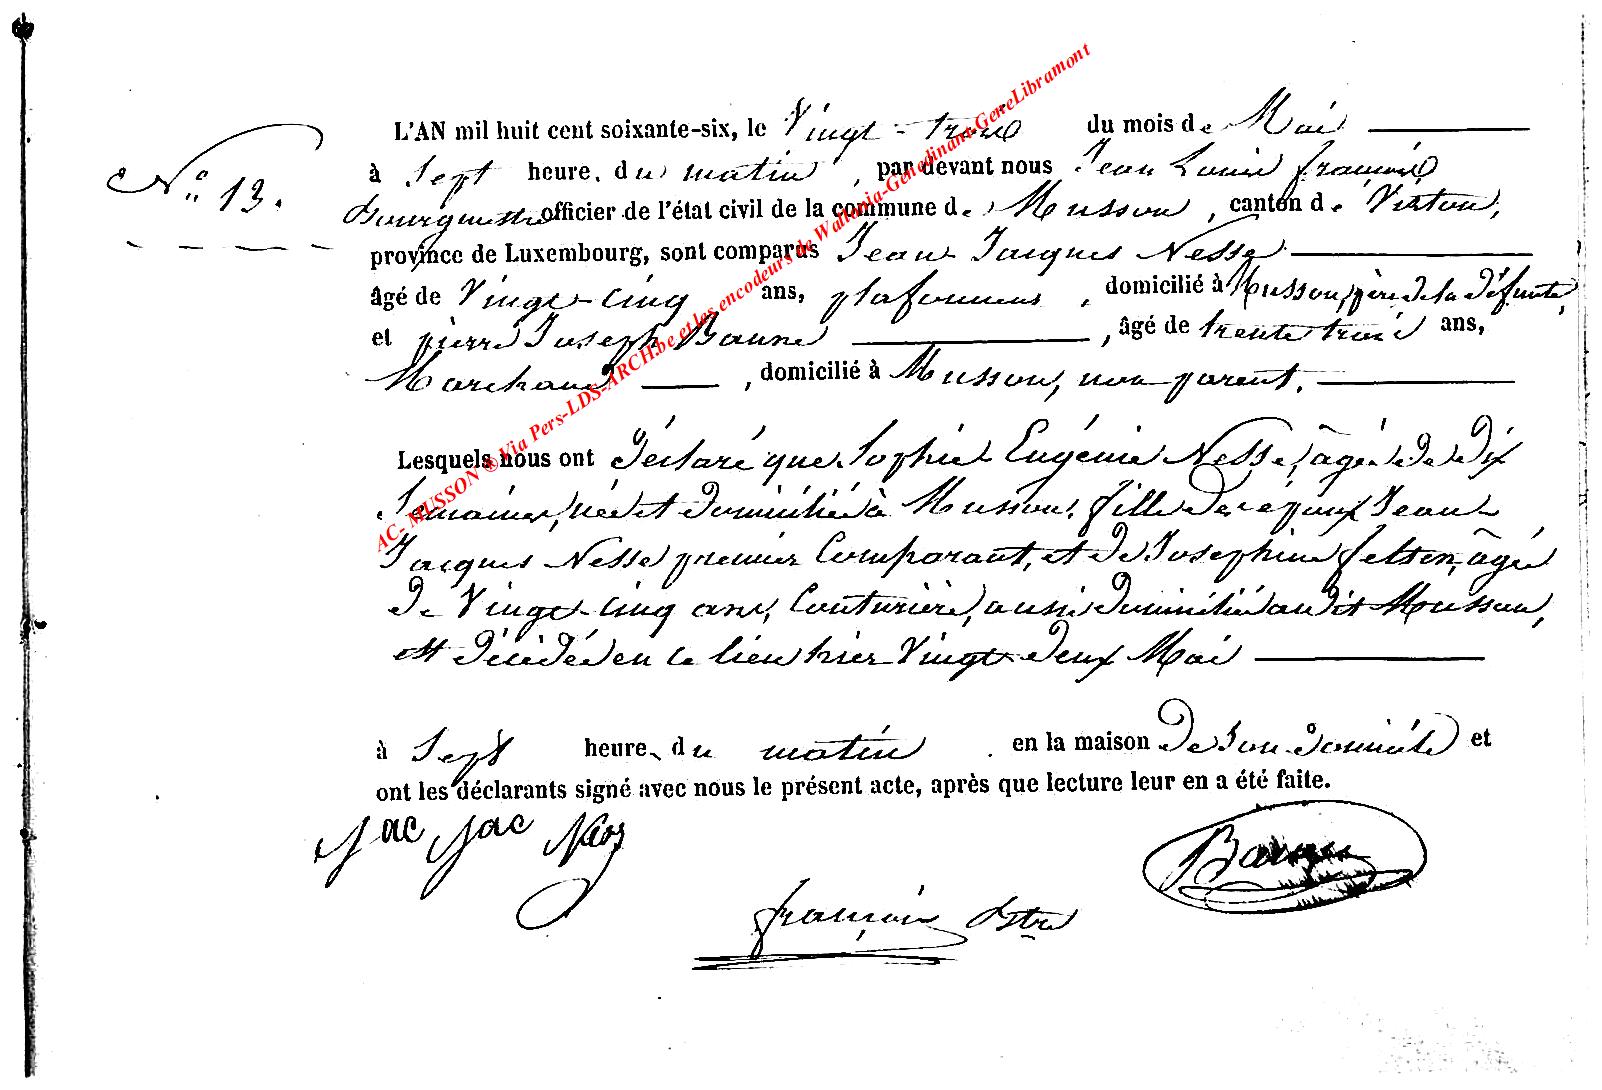 L'AN mil huit cent soixante-six, le Vingt-trois du mois de Mai
N.° 13.
à Sept heure. du matin, par devant nous Jean Louis françois
Bourgmestre officier de l'état civil de la commune de Musson, canton de Virton,
province de Luxembourg, sont comparus Jean Jacques Nesse
âgé de Vingt-cinq ans, plafonneur, domicilié à Musson, père de la défunte,
et pierre Joseph Baune, âgé de trente trois ans,
Marchand, domicilié à Musson, non parent.
Lesquels nous ont déclaré que Sophie Eugénie Nesse, âgée de dix
Semaines, née et domiciliée à Musson, fille des époux Jean
Jacques Nesse premier Comparant, et de Josephine felten, âgée
de Vingt-cinq ans, Couturière, aussi domiciliée audit Musson,
est décédée en ce lieu hier Vingt deux Mai
à Sept heure du matin en la maison de son domicile et
ont les déclarants signé avec nous le présent acte, après que lecture leur en a été faite.
Jac Jac
françois
AC- MUSSON ® Via Pers-LDS-ARCH.be et les encodeurs de Wallonia-Genedinant-GeneLibramont